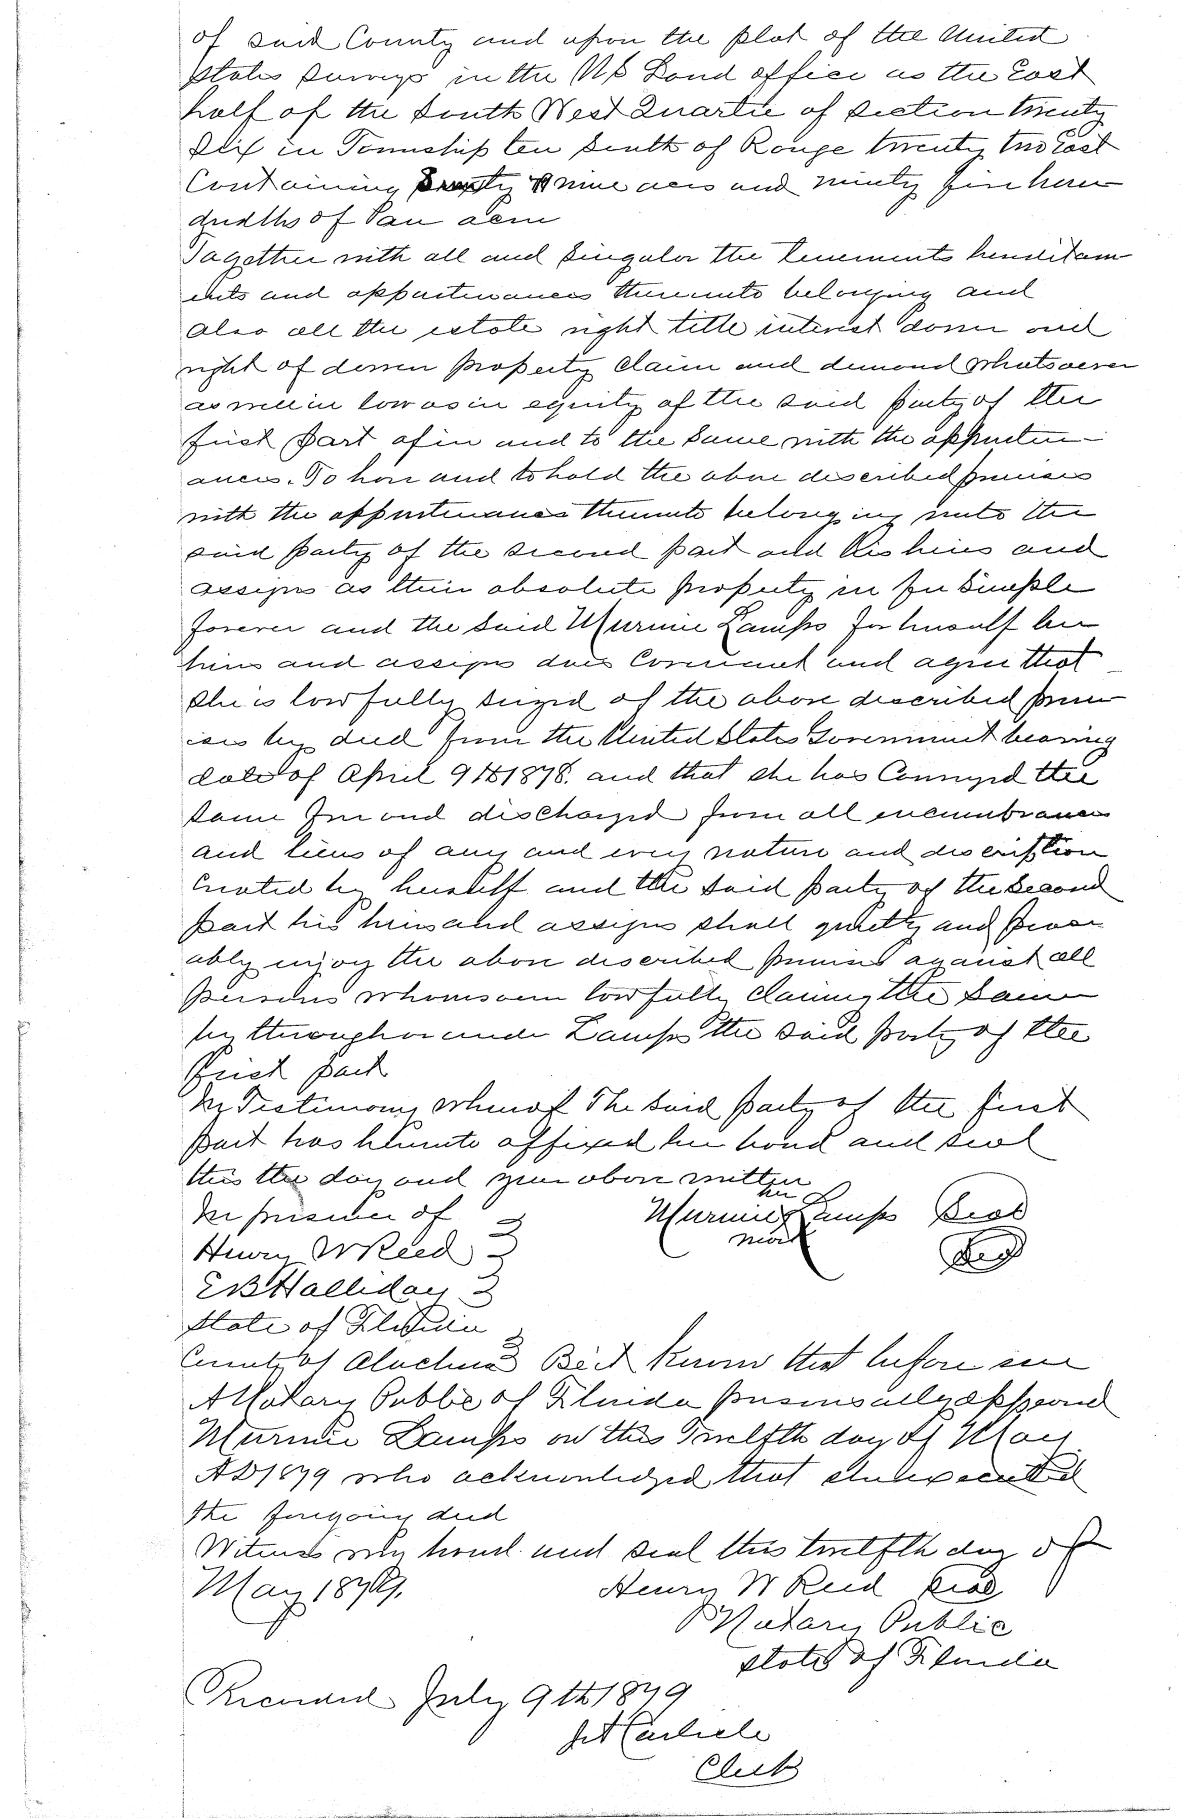 of said County and upon the plat of the United
States surveys in the U S Land office as the East
half of the South West Quarter of Section twenty
Six in Township ten South of Range twenty two East
Containing nine acres and ninty five hun
dredths of an acre
Together with all and singular the tenements hereditam
ents and appurtenances thereunto belonging and
also all the estate right title interest dower and
right of dower property claim and demand whatsoever
as well in law as in equity of the said party of the
first part of in and to the same with the appurten
ances. To have and to hold the above described premises
with the appurtenances thereunto belonging unto the
said party of the second part and his heirs and
assigns as their absolute property in fee simple
forever and the said Lamps for herself her
heirs and assigns does Covenant and agree that
she is lawfully seized of the above described prem
ises by deed from the United States Government bearing
date of April 9th 1878. and that she has Conveyed the
same free and discharged from all encumbrances
and liens of any and every nature and description
Created by herself and the said party of the second
part his heirs and assigns shall quietly and peace
ably enjoy the above described premises against all
persons whomsoever lawfully claiming the same
by through or under Lamps the said party of the
first part
In Testimony whereof The said party of the first
part has hereunto affixed her hand and seal
this the day and year above written
In presence of her Lamps Seal
Henry W Reed mark Seal
E B Halliday
State of Florida
County of Alachua Be it Known that before me
A Notary Public of Florida personally appeared
Lamps on this Twelfth day of May
AD 1879 who acknowledged that she executed
the foregoing deed
Witness my hand and seal this twelfth day of
May 1879. Henry W Reed Seal
Notary Public
State of Florida
Recorded July 9th 1879
J A Carlisle
Clerk